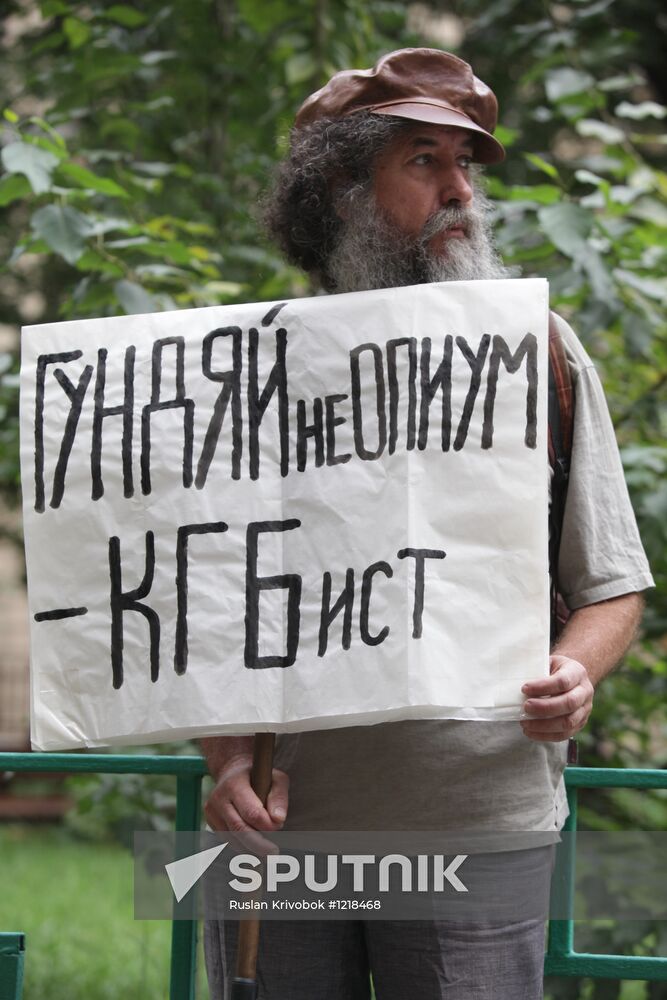 ГУНДЯЙ НЕ ОПИУМ
- КГБИСТ
SPUTNIK
Ruslan Krivobok / 1218468